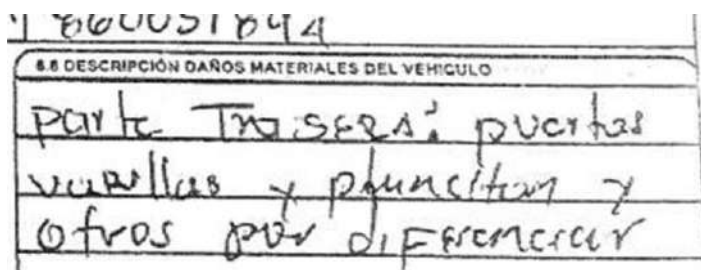 860051894
8.8 DESCRIPCIÓN DAÑOS MATERIALES DEL VEHICULO
parte TraseRA: puertas
varillas y y
otros por diferenciar